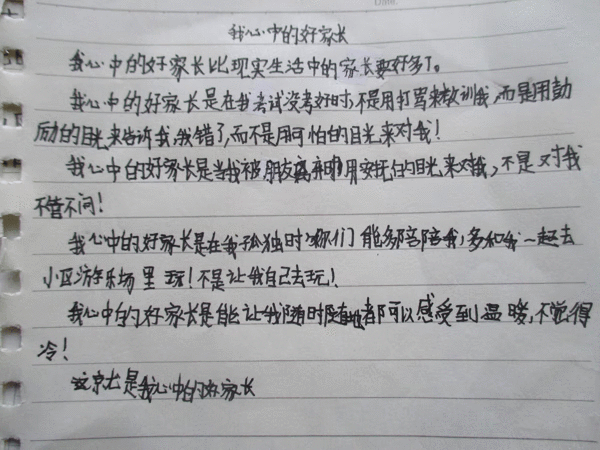 我心中的好家长
我心中的好家长比现实生活中的家长要好多了。
我心中的好家长是在我考试没考好时,不是用打骂来教训我,而是用鼓
励的目光来告诉我,我错了,而不是用可怕的目光来对我!
我心中的好家长是当我被朋友离弃时用安抚的目光来对我,不是对我
不管不问!
我心中的好家长是在我孤独时,你们能多陪陪我,多和我一起去
小区游乐场里玩!不是让我自己去玩!
我心中的好家长是能让我随时随地都可以感受到温暖,不觉得
冷!
这就是我心中的好家长